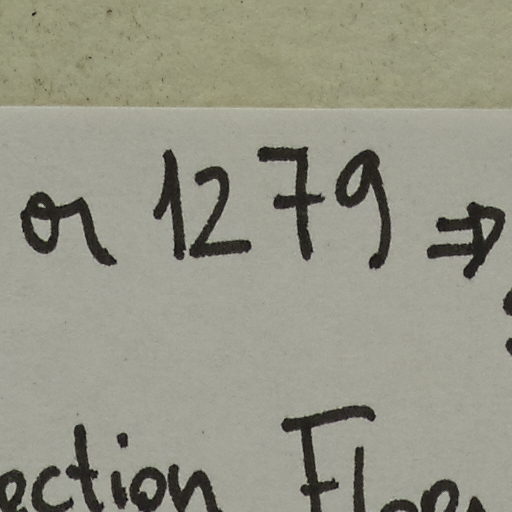 or 1279 ⇒
ection Floor